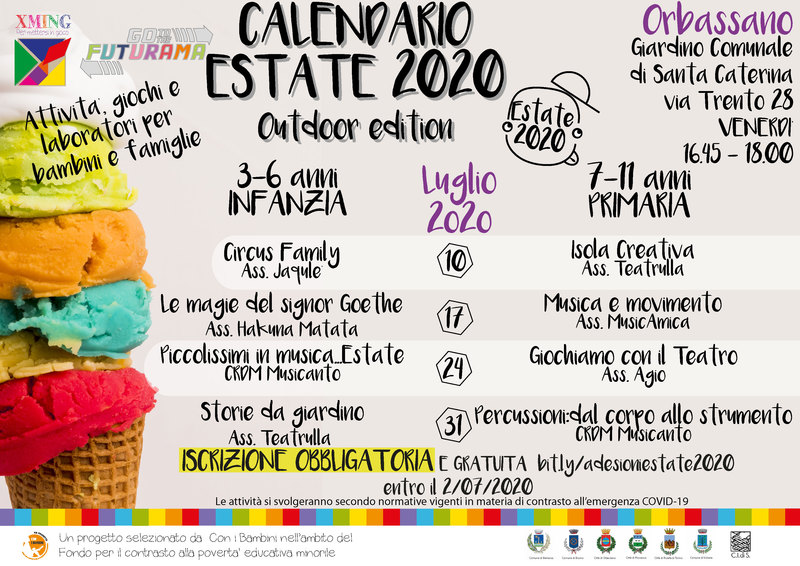 XMING
Per mettersi in gioco
GO TO THE
FUTURAMA
CALENDARIO
ESTATE 2020
Outdoor edition
Attivita', giochi e
laboratori per
bambini e famiglie
Estate
2020
Orbassano
Giardino Comunale
di Santa Caterina
via Trento 28
VENERDI'
16.45 - 18.00
3-6 anni
INFANZIA
Luglio
2020
7-11 anni
PRIMARIA
Circus Family
Ass. Jaqule'
10
Isola Creativa
Ass. Teatrulla
Le magie del signor Goethe
Ass. Hakuna Matata
17
Musica e movimento
Ass. MusicAmica
Piccolissimi in musica...Estate
CRDM Musicanto
24
Giochiamo con il Teatro
Ass. Agio
Storie da giardino
Ass. Teatrulla
31
Percussioni:dal corpo allo strumento
CRDM Musicanto
ISCRIZIONE OBBLIGATORIA E GRATUITA bit.ly/adesioniestate2020
entro il 2/07/2020
Le attività si svolgeranno secondo normative vigenti in materia di contrasto all'emergenza COVID-19
Un progetto selezionato da Con i Bambini nell'ambito del
Fondo per il contrasto alla poverta' educativa minorile
C.I.di S.